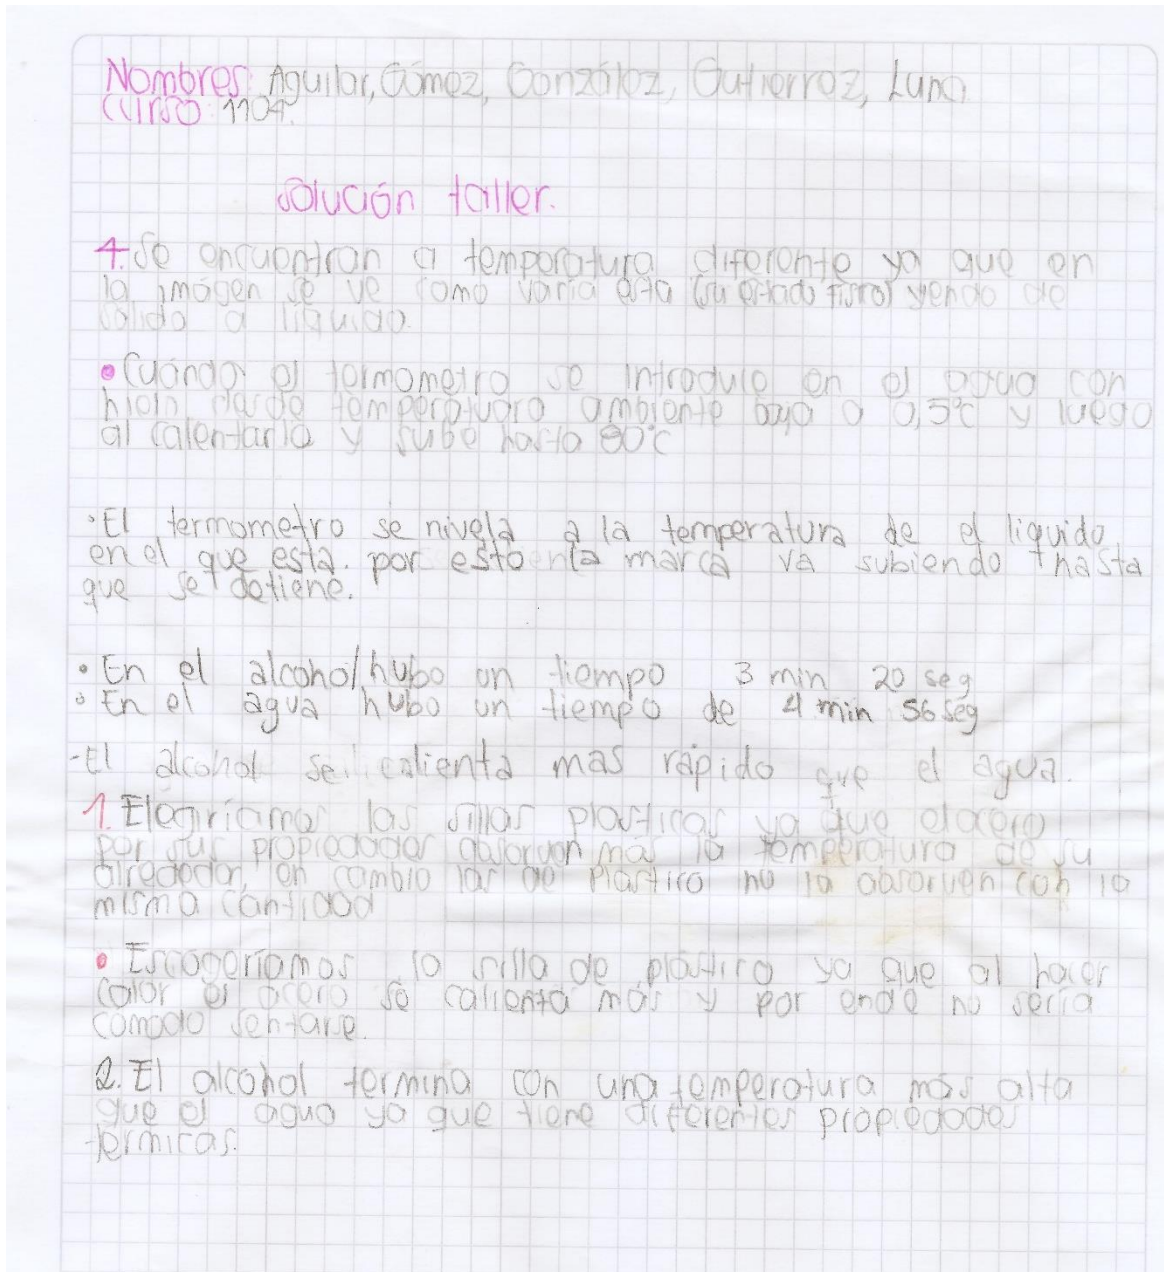 Nombres: Aguilar, Gómez, González, Gutierrez, Luna
Curso: 1104.
Solución taller.
4. Se encuentran a temperatura diferente ya que en
la imágen se ve como varia esta (su estado fisico) yendo de
solido a liquido.
• Cuándo el termometro se introduce en el agua con
hielo desde temperatura ambiente baja a 0,5°c y luego
al calentarla y sube hasta 80°c
• El termometro se nivela a la temperatura de el liquido
en el que esta. por esto la marca va subiendo hasta
que se detiene.
• En el alcohol hubo un tiempo 3 min 20 seg
• En el agua hubo un tiempo de 4 min 56 seg
-El alcohol se calienta mas rápido que el agua.
1. Elegiríamos las sillas plasticas ya que el acero
por sus propiedades absorven más la temperatura de su
alrededor, en cambio las de plástico no la absorven con la
misma cantidad
• Escogeriamos la silla de plástico ya que al hacer
calor el acero se calienta más y por ende no sería
comodo sentarse.
2. El alcohol termina con una temperatura más alta
que el agua ya que tiene diferentes propiedades
termicas.